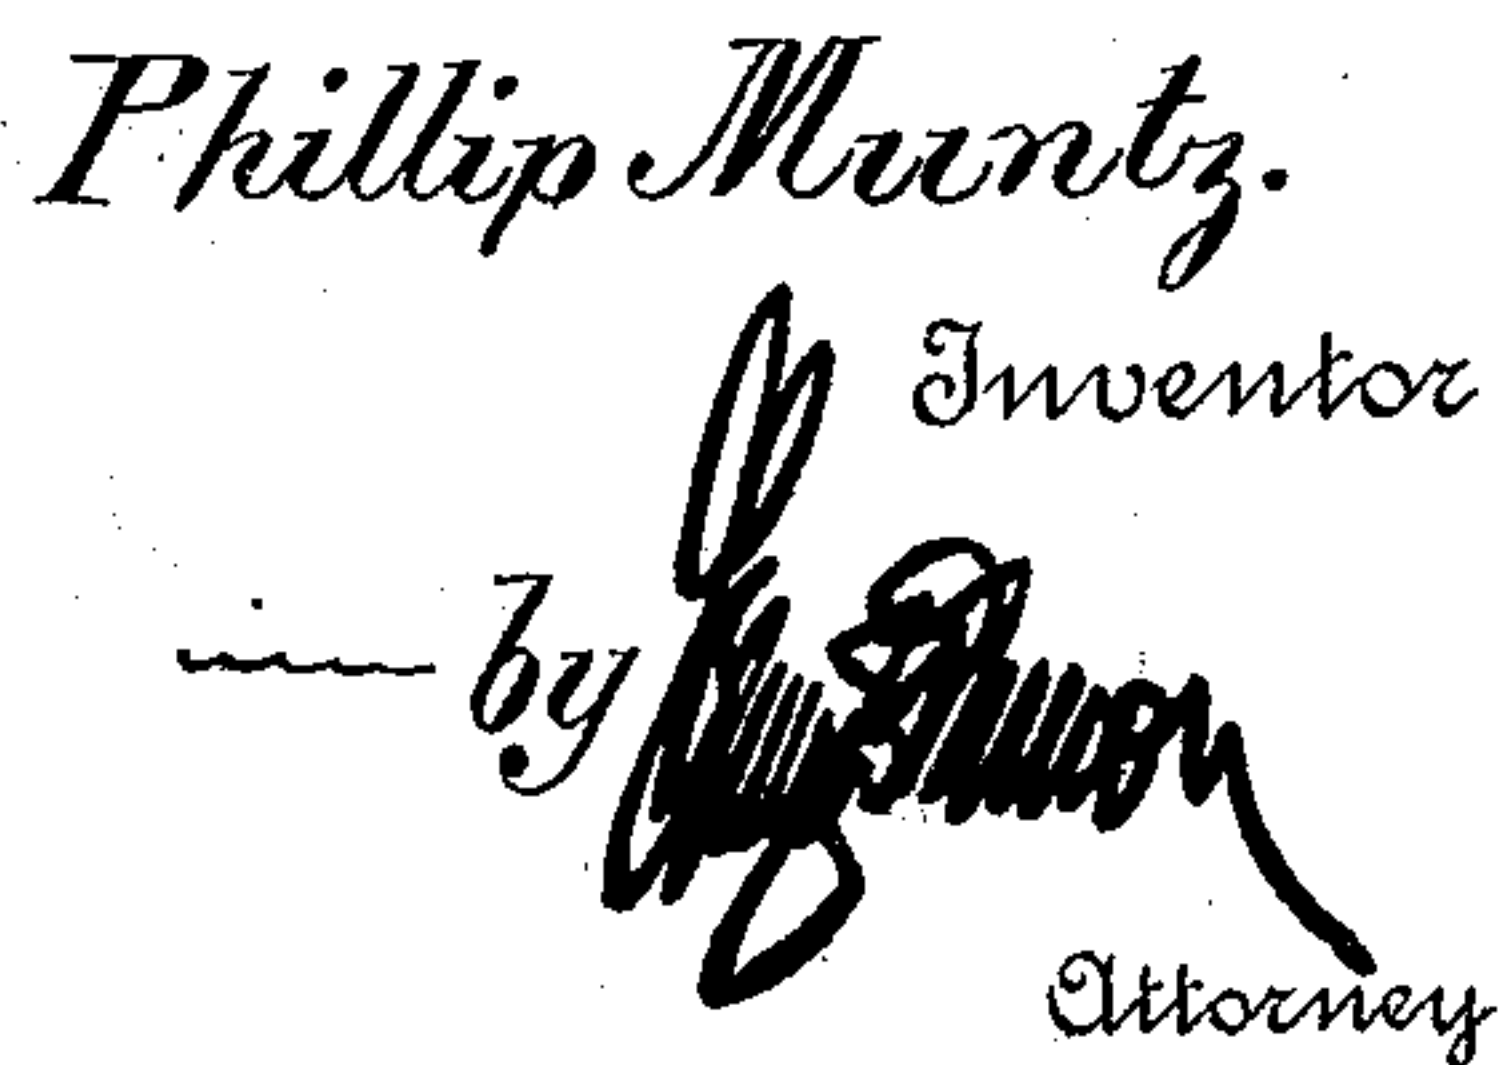 Phillip Muntz.
Inventor
by
Attorney